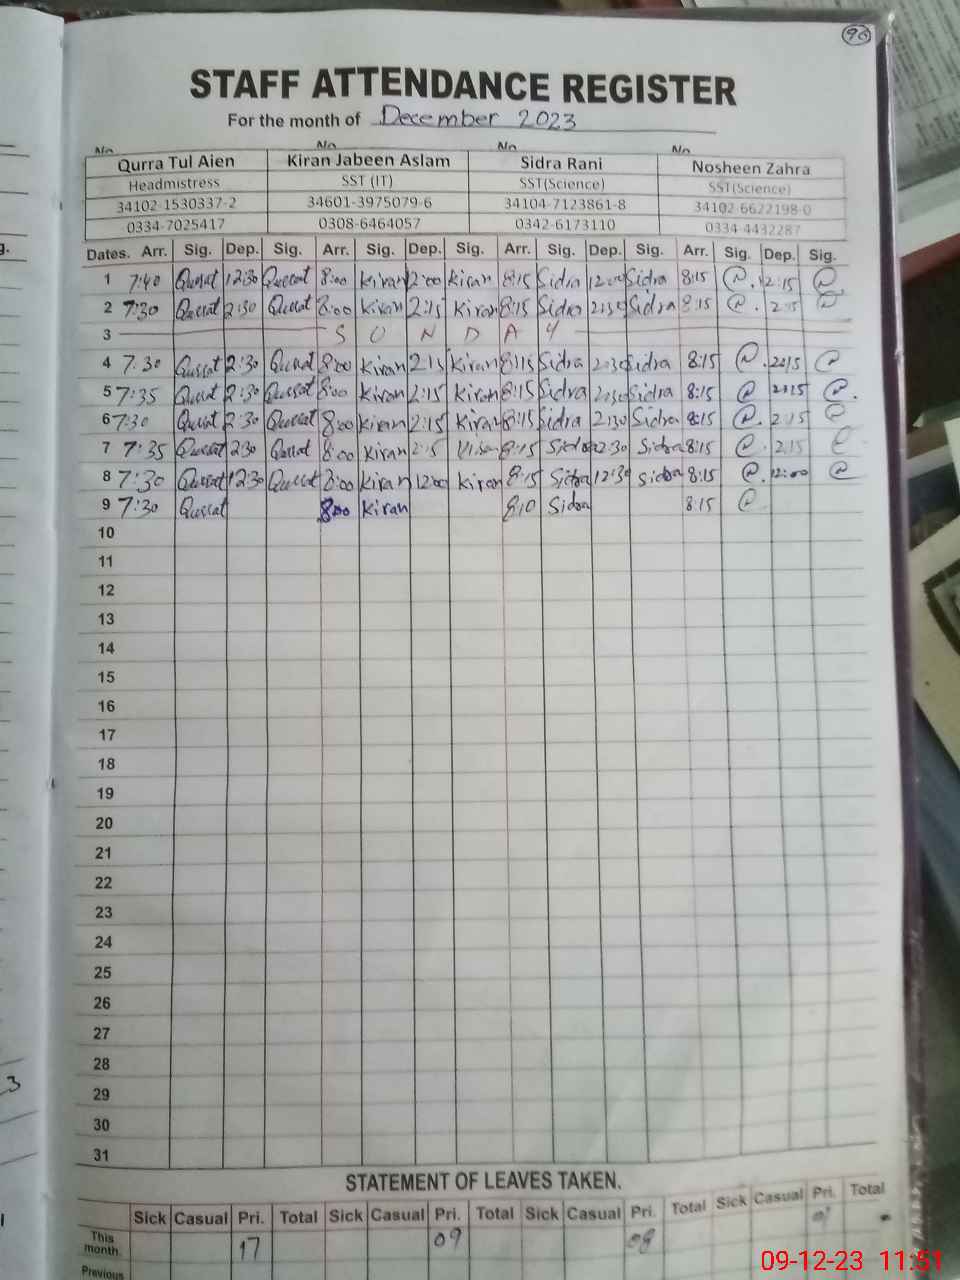 96
STAFF ATTENDANCE REGISTER
For the month of December 2023
No No No No
Qurra Tul Aien Kiran Jabeen Aslam Sidra Rani Nosheen Zahra
Headmistress SST (IT) SST(Science) SST(Science)
34102-1530337-2 34601-3975079-6 34104-7123861-8 34102-6622198-0
0334-7025417 0308-6464057 0342-6173110 0334-4432287
Dates. Arr. Sig. Dep. Sig. Arr. Sig. Dep. Sig. Arr. Sig. Dep. Sig. Arr. Sig. Dep. Sig.
1 7:40 Qurrat 12:30 Qurrat 8:00 Kiran 2:00 Kiran 8:15 Sidra 12:00 Sidra 8:15 12:15
2 7:30 Qurrat 2:30 Qurrat 8:00 Kiran 2:15 Kiran 8:15 Sidra 2:30 Sidra 8:15 2:15
3 S U N D A Y
4 7:30 Qurrat 2:30 Qurrat 8:00 Kiran 2:15 Kiran 8:15 Sidra 2:30 Sidra 8:15 2:15
5 7:35 Qurrat 2:30 Qurrat 8:00 Kiran 2:15 Kiran 8:15 Sidra 2:30 Sidra 8:15 2:15
6 7:30 Qurrat 2:30 Qurrat 8:00 Kiran 2:15 Kiran 8:15 Sidra 2:30 Sidra 8:15 2:15
7 7:35 Qurrat 2:30 Qurrat 8:00 Kiran 2:15 Kiran 8:15 Sidra 2:30 Sidra 8:15 2:15
8 7:30 Qurrat 12:30 Qurrat 8:00 Kiran 12:00 Kiran 8:15 Sidra 12:30 Sidra 8:15 12:00
9 7:30 Qurrat 8:00 Kiran 8:10 Sidra 8:15
10
11
12
13
14
15
16
17
18
19
20
21
22
23
24
25
26
27
28
29
30
31
STATEMENT OF LEAVES TAKEN.
Sick Casual Pri. Total Sick Casual Pri. Total Sick Casual Pri. Total Sick Casual Pri. Total
This month. 17 09 08
Previous
09-12-23 11:51